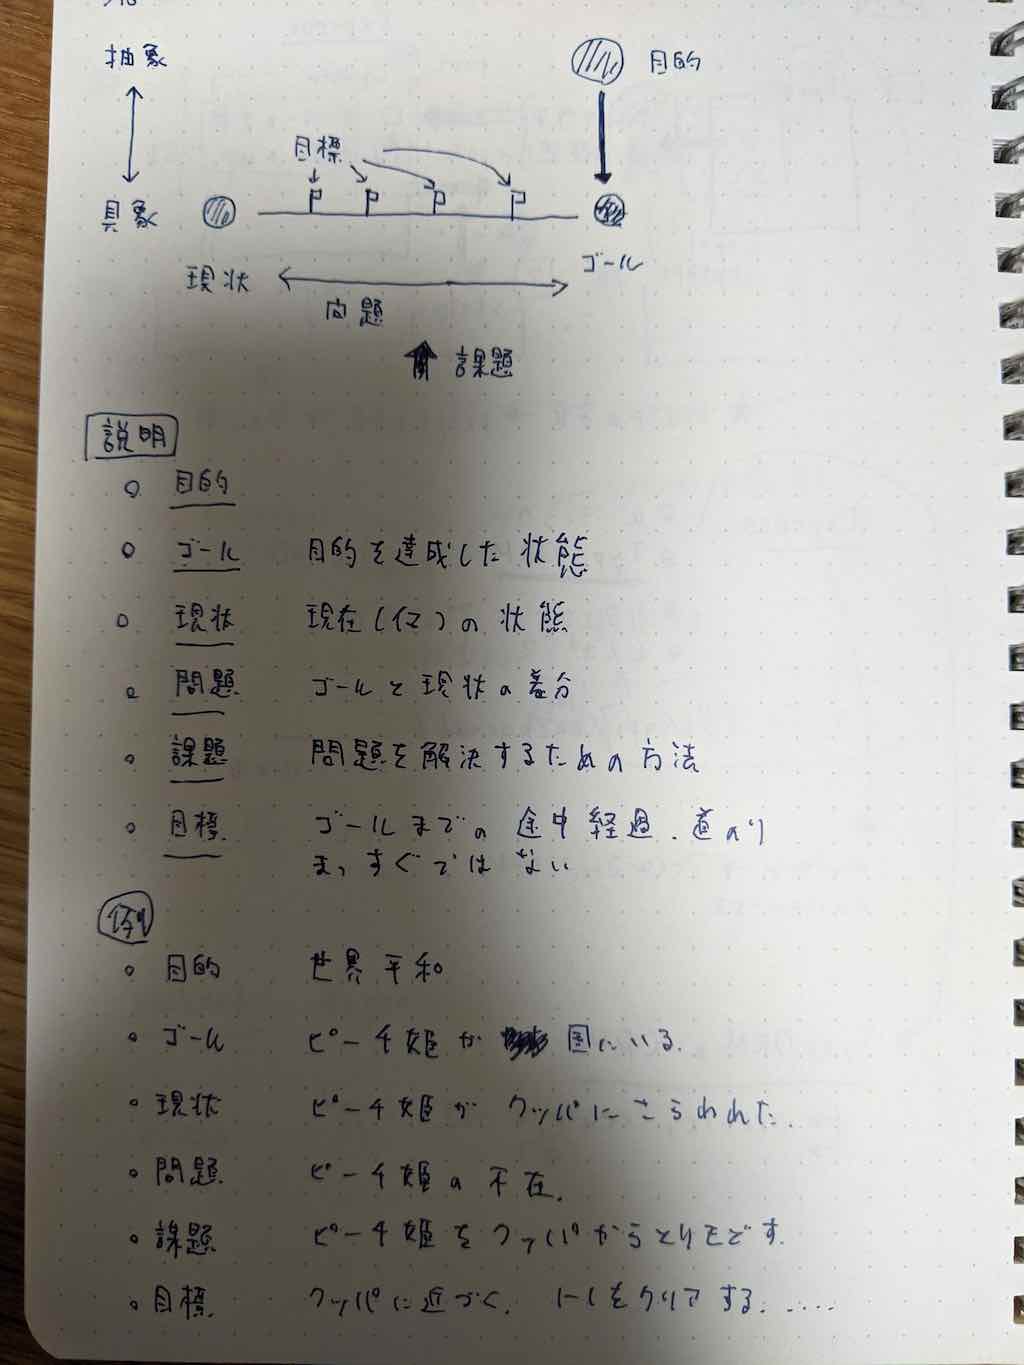 抽象
目的
目標
具象
ゴール
現状
問題
課題
説明
目的
ゴール 目的を達成した状態
現状 現在(仮)の状態
問題 ゴールと現状の差分
課題 問題を解決するための方法
目標 ゴールまでの途中経過、道のり
まっすぐではない
例
目的 世界平和
ゴール ピーチ姫が 国にいる.
現状 ピーチ姫がクッパにさらわれた.
問題 ピーチ姫の不在.
課題 ピーチ姫をクッパからとりもどす.
目標 クッパに近づく. 1-1をクリアする......